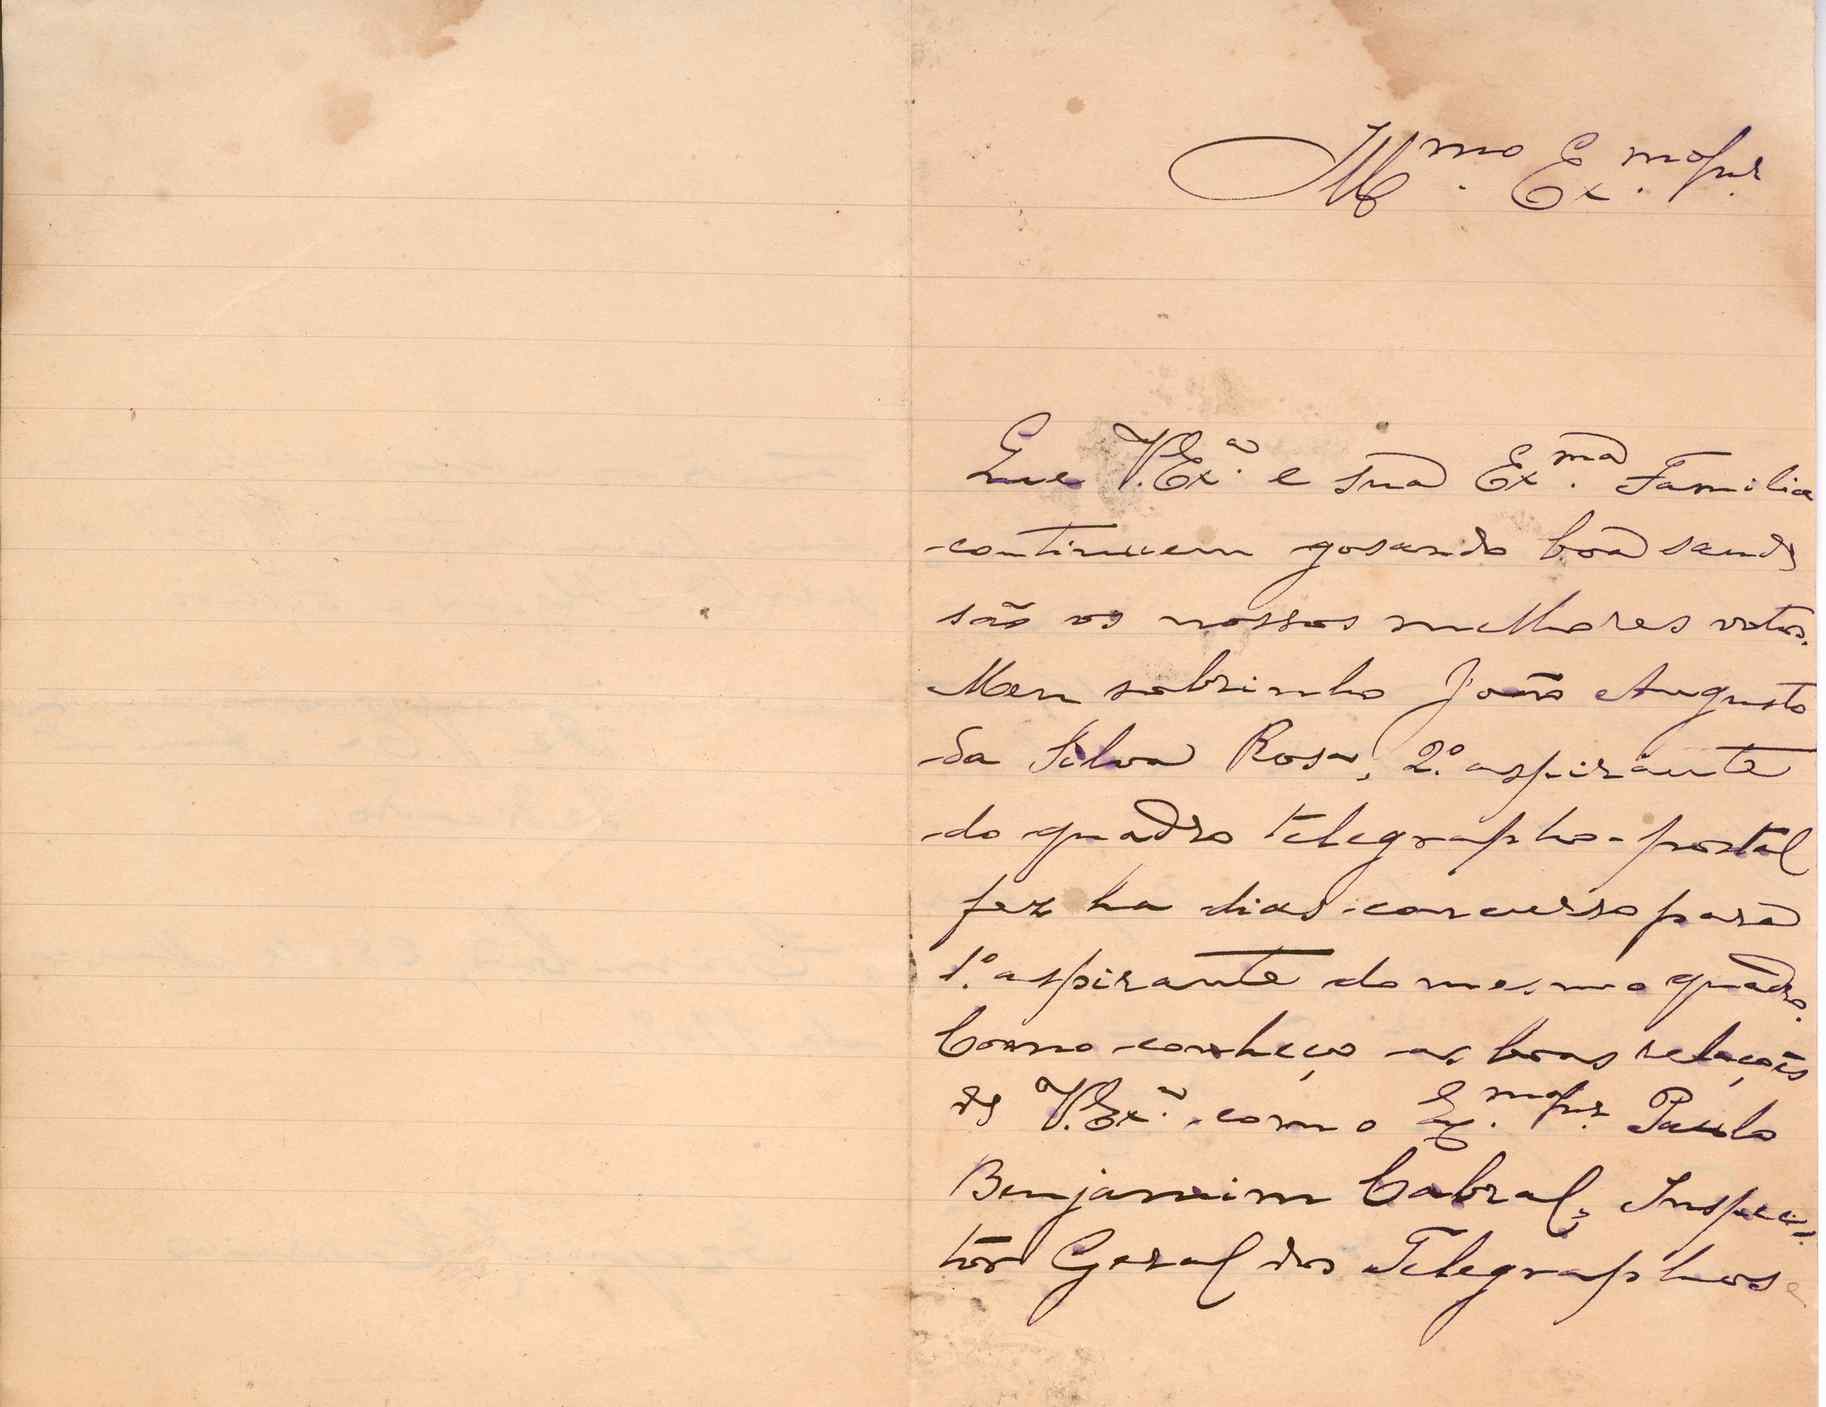 Illmo. Exmo. Snr.
Que V. Exa. e sua Exma. Familia
continuem gosando boa saude
são os nossos melhores votos.
Meu sobrinho João Augusto
da Silva Rosa, 2.º aspirante
do quadro telegrapho-postal
fez ha dias concurso para
1.º aspirante do mesmo quadro.
Como conheço as boas relações
de V. Exa. com o Exmo. Snr. Paulo
Benjamim Cabral, Inspec-
tor Geral dos Telegraphos e